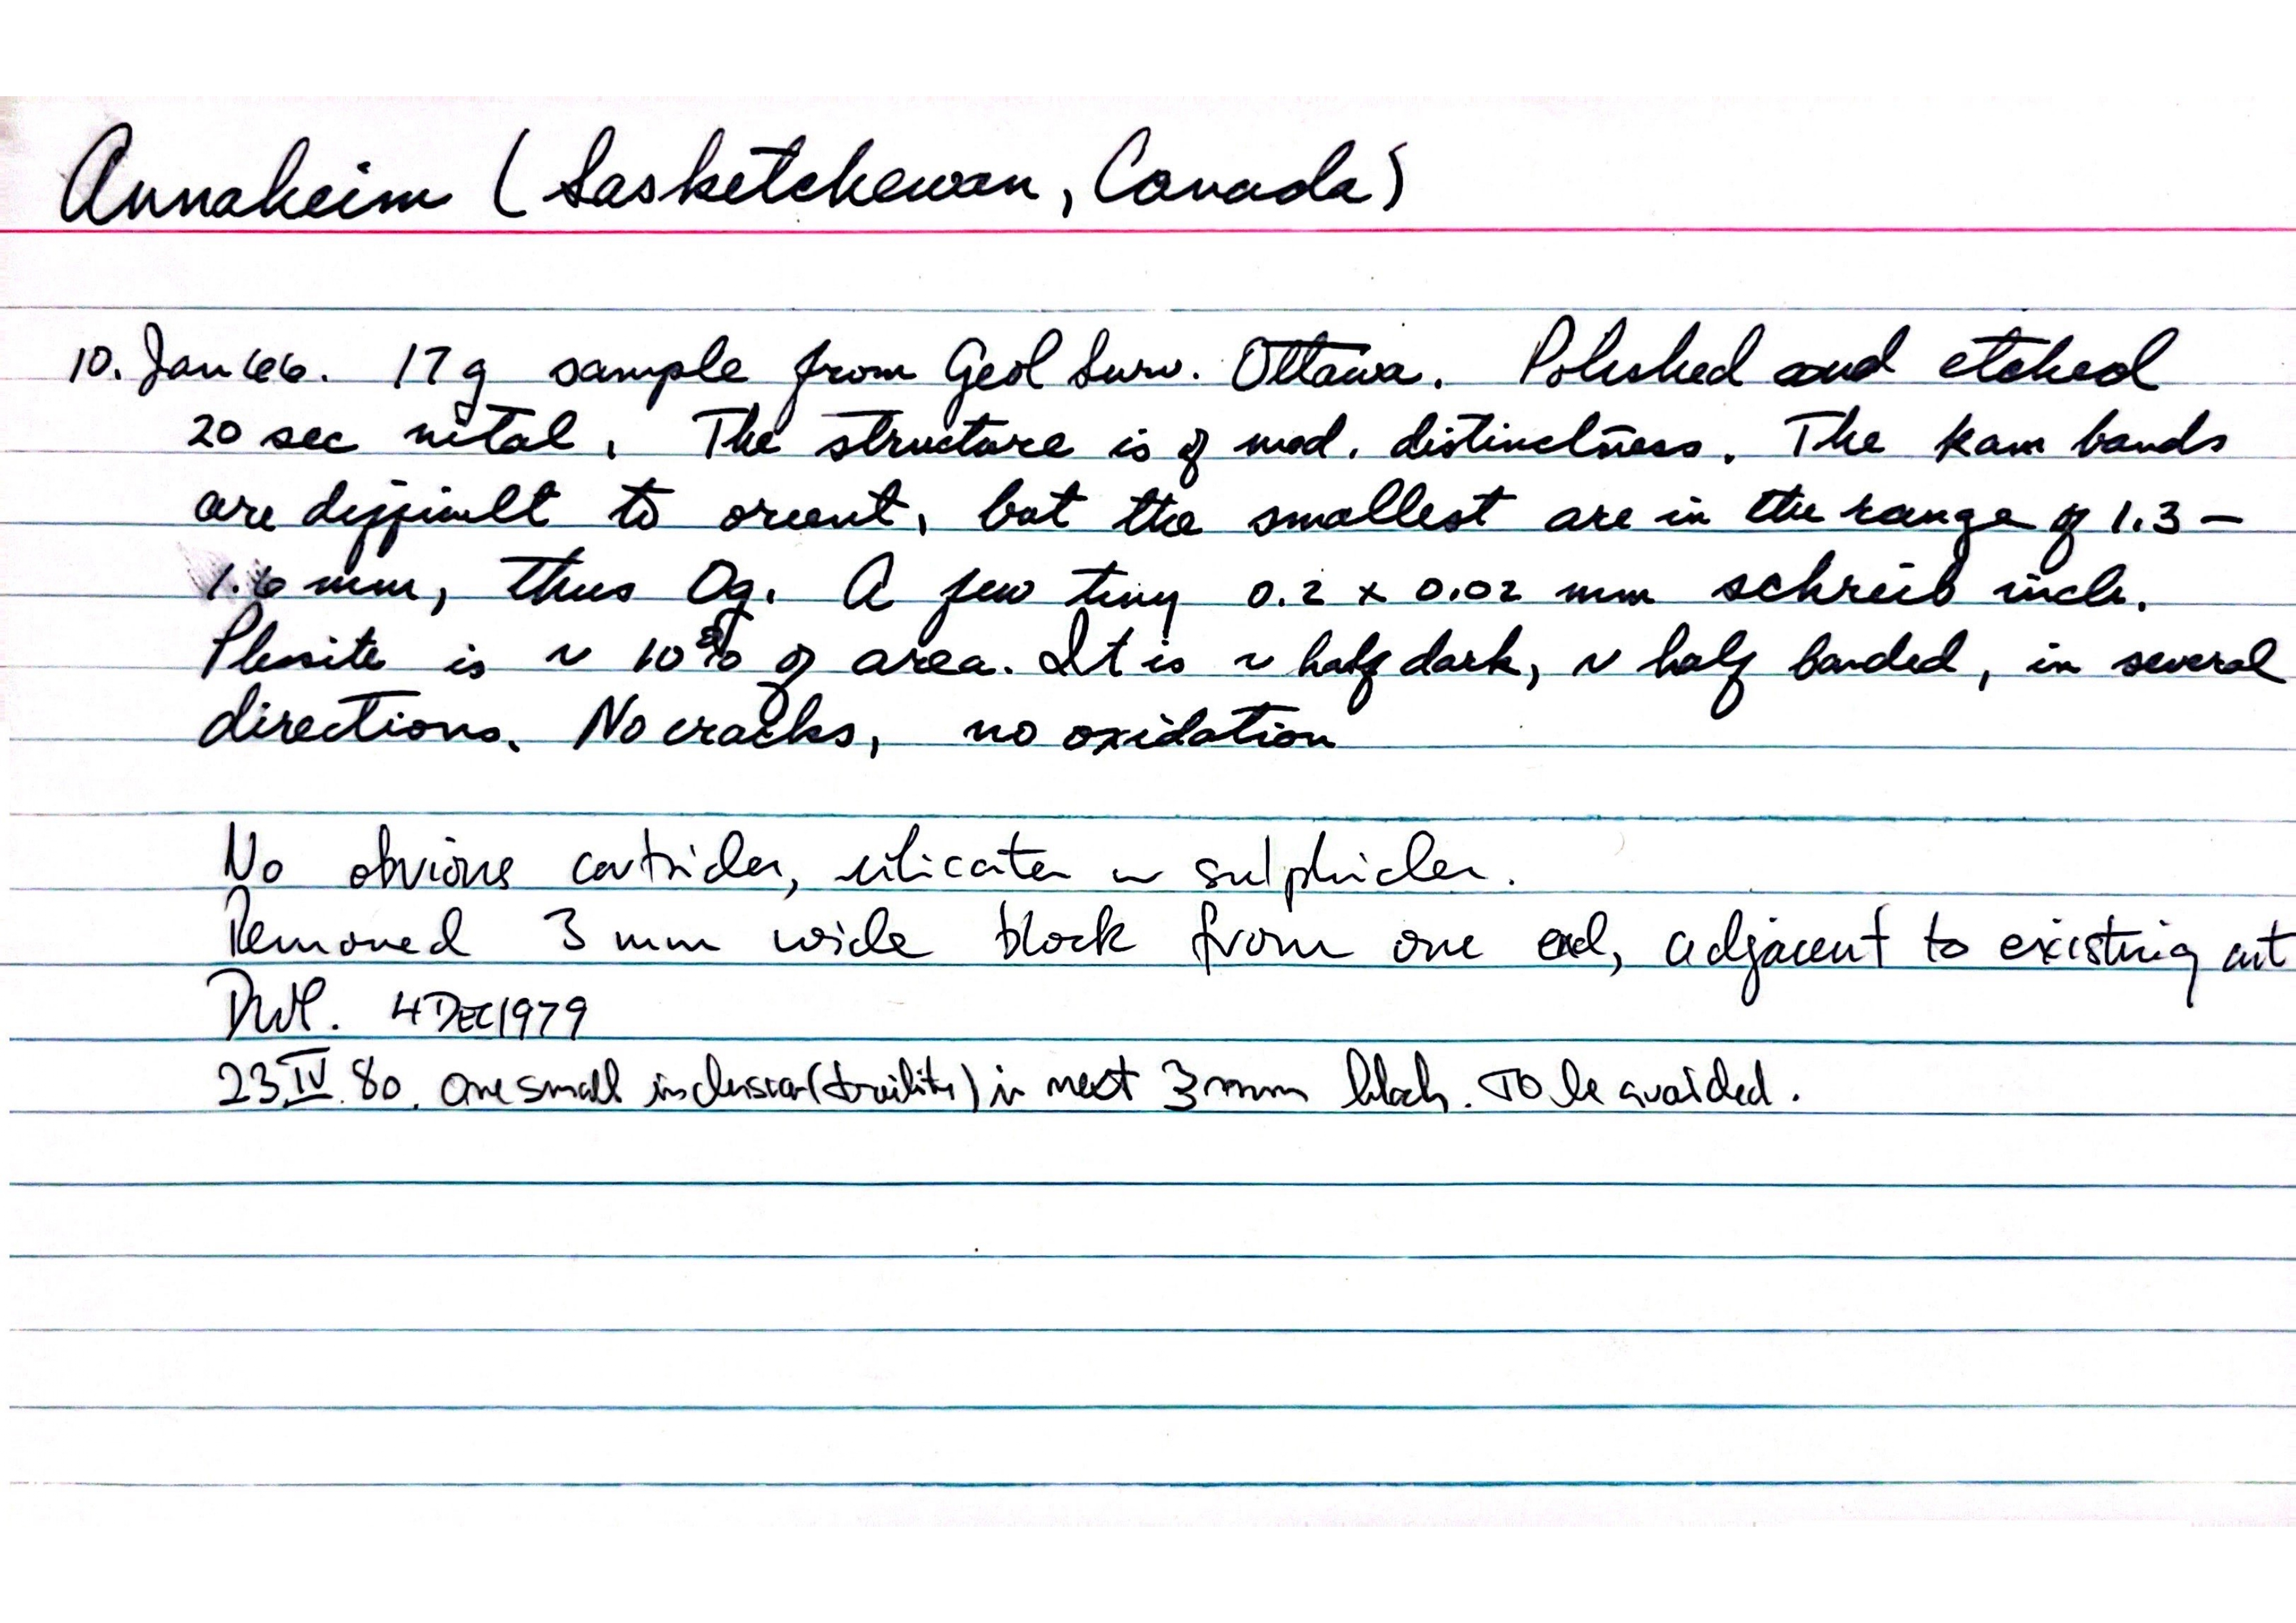 Annaheim (Sasketchewan, Canada)
10. Jan 66. 17 g sample from Geol Surv. Ottawa. Polished and etched
20 sec nital. The structure is of mod. distinctness. The kam bands
are difficult to orient, but the smallest are in the range of 1.3 –
1.6 mm, thus Og. A few tiny 0.2 x 0.02 mm schreib incls.
Plessite is ~ 10% of area. It is ~ half dark, ~ half banded, in several
directions. No cracks, no oxidation
No obvious carbides, silicates or sulphides.
Removed 3 mm wide block from one end, adjacent to existing cut
4 DEC 1979
23 IV 80. One small inclusion (troilite) in next 3 mm block. To be avoided.